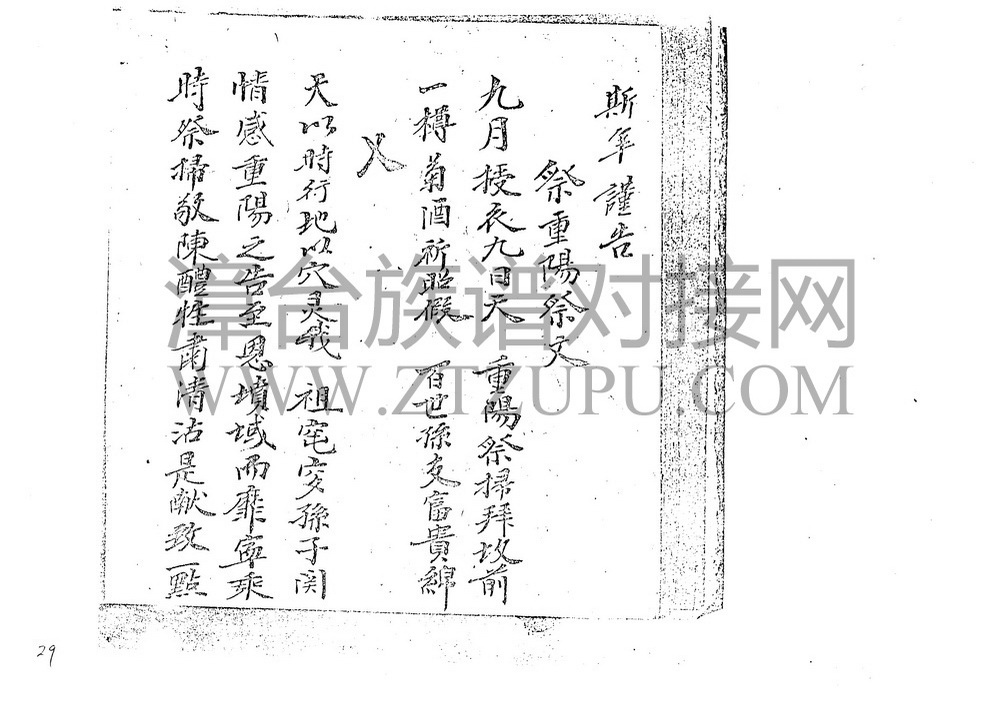 斯年 謹告
祭重陽祭文
九月授衣九日天 重陽祭掃拜坟前
一樽菊酒祈昭假 百世孫支富貴綿
又
天以時行地以穴灵哉 祖窀安孫子関
情感重陽之告至恩墳域而靡寧乘
時祭掃敬陳醴牲肅清沽是献致一點
漳台族谱对接网
WWW.ZTZUPU.COM
29